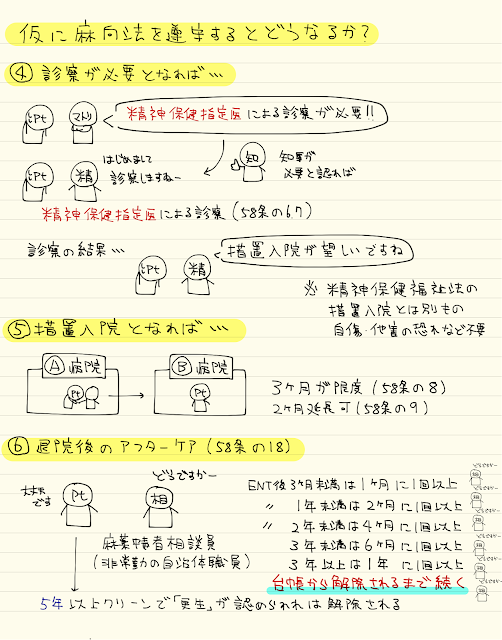 仮に麻向法を遵守するとどうなるか?
④ 診察が必要となれば…
Pt
マトリ
精神保健指定医による診察が必要!!
Pt
精
はじめまして
診察しますねー
知
知事が
必要と認れば
精神保健指定医による診察(58条の6,7)
診察の結果…
Pt
精
措置入院が望しいですね
※ 精神保健福祉法の
措置入院とは別もの
自傷・他害の恐れなど不要
⑤ 措置入院となれば…
Ⓐ 病院
Pt
Ⓑ 病院
Pt
3ヶ月が限度(58条の8)
2ヶ月延長可(58条の9)
⑥ 退院後のアフターケア(58条の18)
大丈夫
です
Pt
どうですかー
相
麻薬中毒者相談員
(非常勤の自治体職員)
ENT後3ヶ月未満は1ヶ月に1回以上
〃 1年未満は2ヶ月に1回以上
〃 2年未満は4ヶ月に1回以上
3年未満は6ヶ月に1回以上
3年以上は1年に1回以上
台帳から解除されるまで続く
5年以上クリーンで「更生」が認められれば解除される